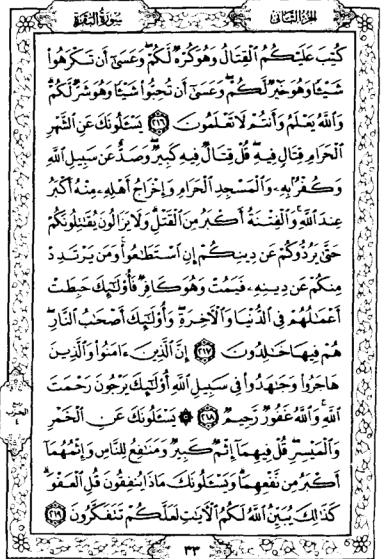 الجزء الثاني
سورة البقرة
كُتِبَ عَلَيْكُمُ ٱلْقِتَالُ وَهُوَ كُرْهٌ لَّكُمْ ۖ وَعَسَىٰٓ أَن تَكْرَهُوا۟
شَيْـًٔا وَهُوَ خَيْرٌ لَّكُمْ ۖ وَعَسَىٰٓ أَن تُحِبُّوا۟ شَيْـًٔا وَهُوَ شَرٌّ لَّكُمْ ۗ
وَٱللَّهُ يَعْلَمُ وَأَنتُمْ لَا تَعْلَمُونَ ٢١٦ يَسْـَٔلُونَكَ عَنِ ٱلشَّهْرِ
ٱلْحَرَامِ قِتَالٍ فِيهِ ۖ قُلْ قِتَالٌ فِيهِ كَبِيرٌ ۖ وَصَدٌّ عَن سَبِيلِ ٱللَّهِ
وَكُفْرٌۢ بِهِۦ وَٱلْمَسْجِدِ ٱلْحَرَامِ وَإِخْرَاجُ أَهْلِهِۦ مِنْهُ أَكْبَرُ
عِندَ ٱللَّهِ ۚ وَٱلْفِتْنَةُ أَكْبَرُ مِنَ ٱلْقَتْلِ ۗ وَلَا يَزَالُونَ يُقَـٰتِلُونَكُمْ
حَتَّىٰ يَرُدُّوكُمْ عَن دِينِكُمْ إِنِ ٱسْتَطَـٰعُوا۟ ۚ وَمَن يَرْتَدِدْ
مِنكُمْ عَن دِينِهِۦ فَيَمُتْ وَهُوَ كَافِرٌ فَأُو۟لَـٰٓئِكَ حَبِطَتْ
أَعْمَـٰلُهُمْ فِى ٱلدُّنْيَا وَٱلْـَٔاخِرَةِ ۖ وَأُو۟لَـٰٓئِكَ أَصْحَـٰبُ ٱلنَّارِ ۖ
هُمْ فِيهَا خَـٰلِدُونَ ٢١٧ إِنَّ ٱلَّذِينَ ءَامَنُوا۟ وَٱلَّذِينَ
هَاجَرُوا۟ وَجَـٰهَدُوا۟ فِى سَبِيلِ ٱللَّهِ أُو۟لَـٰٓئِكَ يَرْجُونَ رَحْمَتَ
ٱللَّهِ ۚ وَٱللَّهُ غَفُورٌ رَّحِيمٌ ٢١٨ ۞ يَسْـَٔلُونَكَ عَنِ ٱلْخَمْرِ
وَٱلْمَيْسِرِ ۖ قُلْ فِيهِمَآ إِثْمٌ كَبِيرٌ وَمَنَـٰفِعُ لِلنَّاسِ وَإِثْمُهُمَآ
أَكْبَرُ مِن نَّفْعِهِمَا ۗ وَيَسْـَٔلُونَكَ مَاذَا يُنفِقُونَ قُلِ ٱلْعَفْوَ ۗ
كَذَٰلِكَ يُبَيِّنُ ٱللَّهُ لَكُمُ ٱلْـَٔايَـٰتِ لَعَلَّكُمْ تَتَفَكَّرُونَ ٢١٩
ربع
الحزب
٤
٣٣